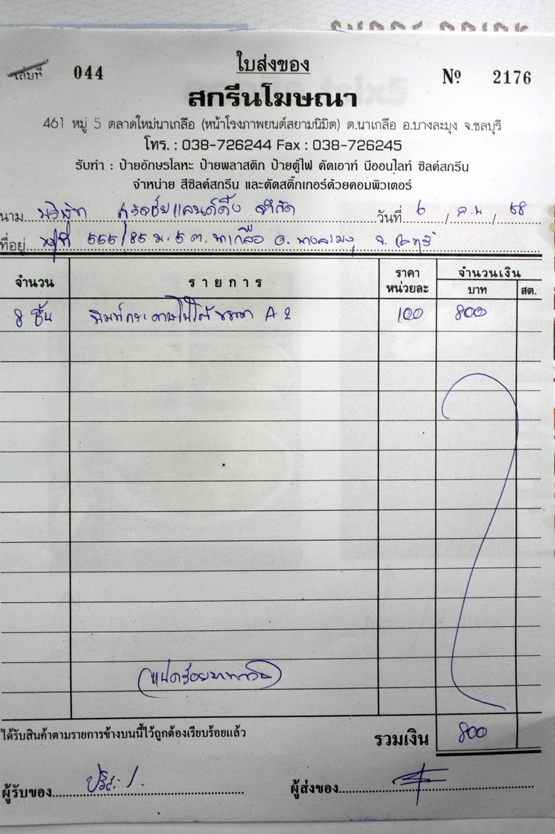 เล่มที่ 044 ใบส่งของ Nº 2176
สกรีนโฆษณา
461 หมู่ 5 ตลาดใหม่นาเกลือ (หน้าโรงภาพยนต์สยามนิมิต) ต.นาเกลือ อ.บางละมุง จ.ชลบุรี
โทร. : 038-726244 Fax : 038-726245
รับทำ : ป้ายอักษรโลหะ ป้ายพลาสติก ป้ายตู้ไฟ คัดเอาท์ นีออนไลท์ ซิลค์สกรีน
จำหน่าย สีซิลค์สกรีน และตัดสติ๊กเกอร์ด้วยคอมพิวเตอร์
นาม บริษัท แลนด์ดิ้ง จำกัด วันที่ 6 / / 58
ที่อยู่ 555/85 ม.5 ต.นาเกลือ อ.บางละมุง จ.ชลบุรี
จำนวน รายการ ราคา หน่วยละ จำนวนเงิน
บาท สต.
8 ชิ้น A2 100 800
(แปดร้อยบาทถ้วน)
ได้รับสินค้าตามรายการข้างบนนี้ไว้ถูกต้องเรียบร้อยแล้ว รวมเงิน 800
ผู้รับของ ผู้ส่งของ